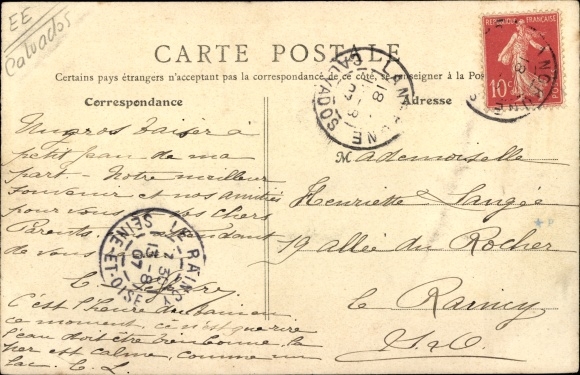 EE
Calvados
CARTE POSTALE
Certains pays étrangers n'acceptent pas la correspondance de ce côté, se renseigner à la Poste
Correspondance
Adresse
RÉPUBLIQUE FRANÇAISE
10c
LANGRUNE
CALVADOS
18 -8 07
Un gros baiser à
petit Jean de ma
part - Notre meilleur
souvenir et nos amitiés
pour vous chers
Parents.
de vous
C'est l'heure du bain en
ce moment ce n'est que rire
l'eau doit être bien bonne, la
mer est calme, comme un
lac. C. L.
LE RAINCY
SEINE-ET-OISE
7 30
13 -8
07
Mademoiselle
Henriette Laugée
19 allée du Rocher
le Raincy
S. & O.